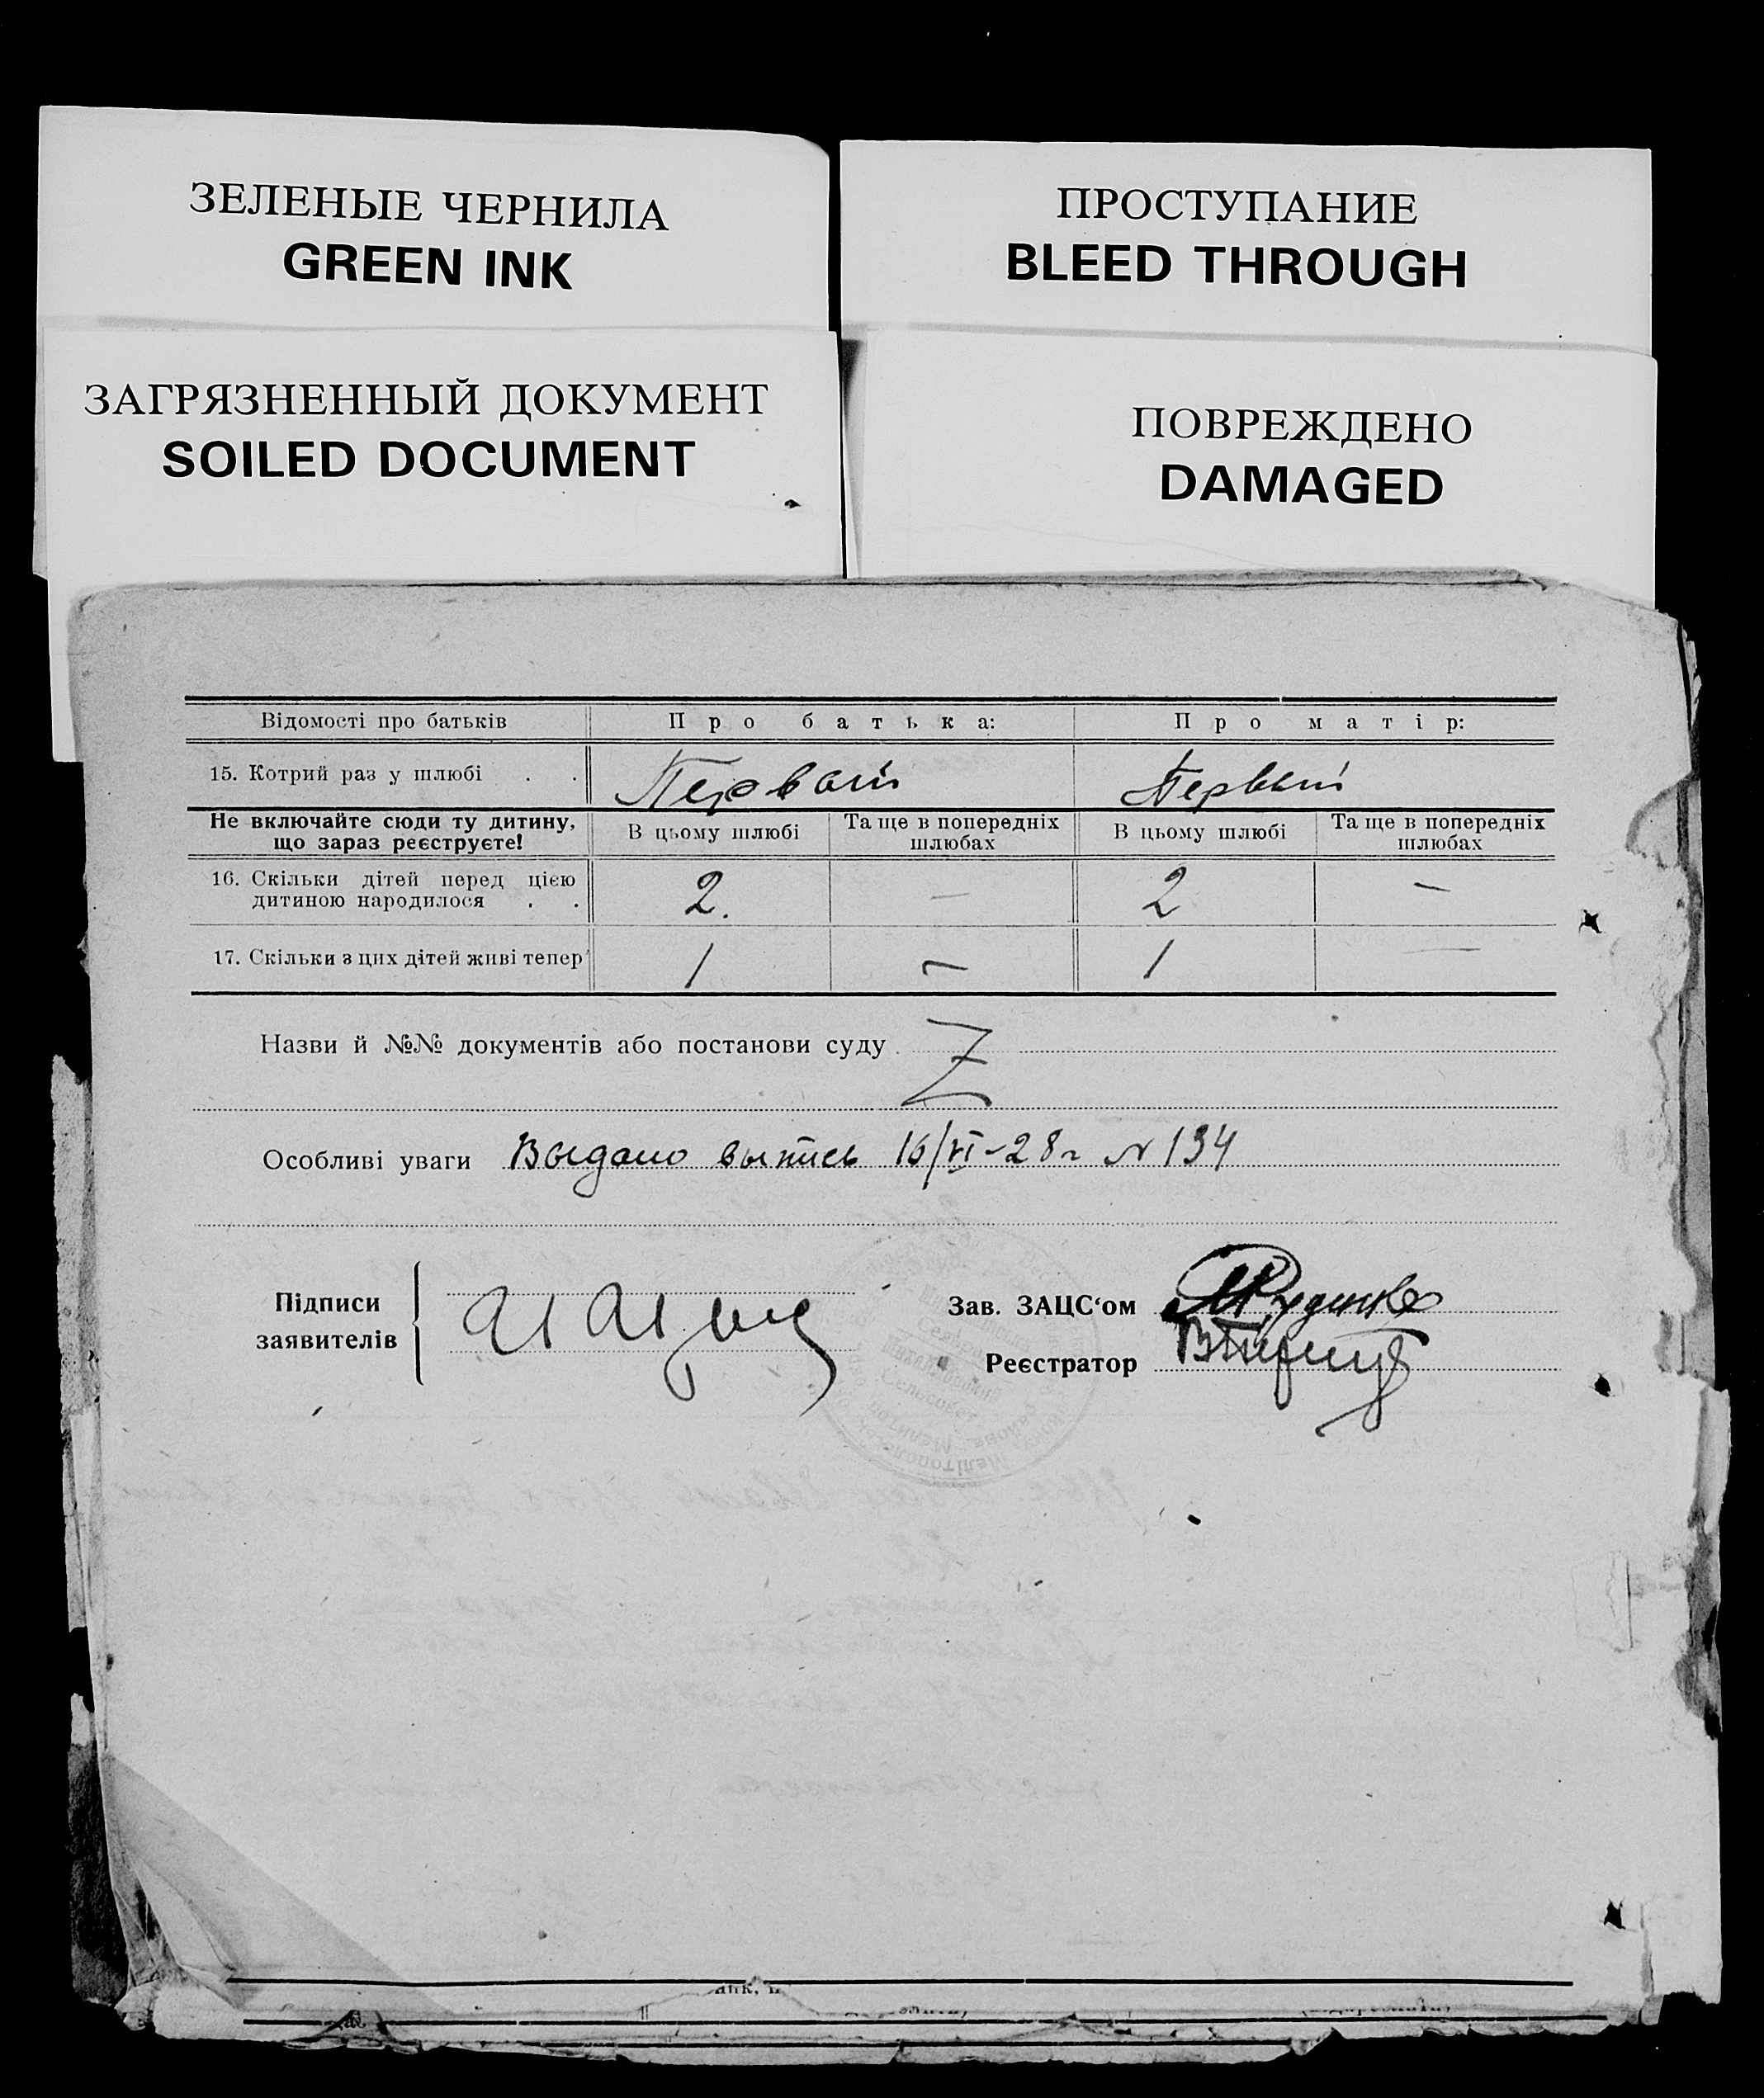 ЗЕЛЕНЫЕ ЧЕРНИЛА
GREEN INK
ПРОСТУПАНИЕ
BLEED THROUGH
ЗАГРЯЗНЕННЫЙ ДОКУМЕНТ
SOILED DOCUMENT
ПОВРЕЖДЕНО
DAMAGED
Відомості про батьків Про батька: Про матір:
15. Котрий раз у шлюбі . . Первый Первый
Не включайте сюди ту дитину, що зараз реєструєте! В цьому шлюбі Та ще в попередніх шлюбах В цьому шлюбі Та ще в попередніх шлюбах
16. Скільки дітей перед цією
дитиною народилося . . 2. — 2 —
17. Скільки з цих дітей живі тепер 1 — 1 —
Назви й №№ документів або постанови суду . Z
Особливі уваги Выдано выпись 16/VI-28г N 134
Підписи
заявителів
Зав. ЗАЦС‘ом МРуденко
Реєстратор